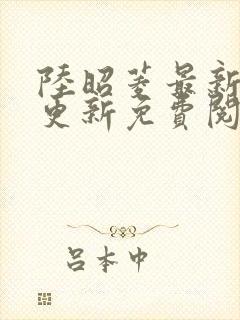 陸昭菱最新
更新免費閱
呂本中